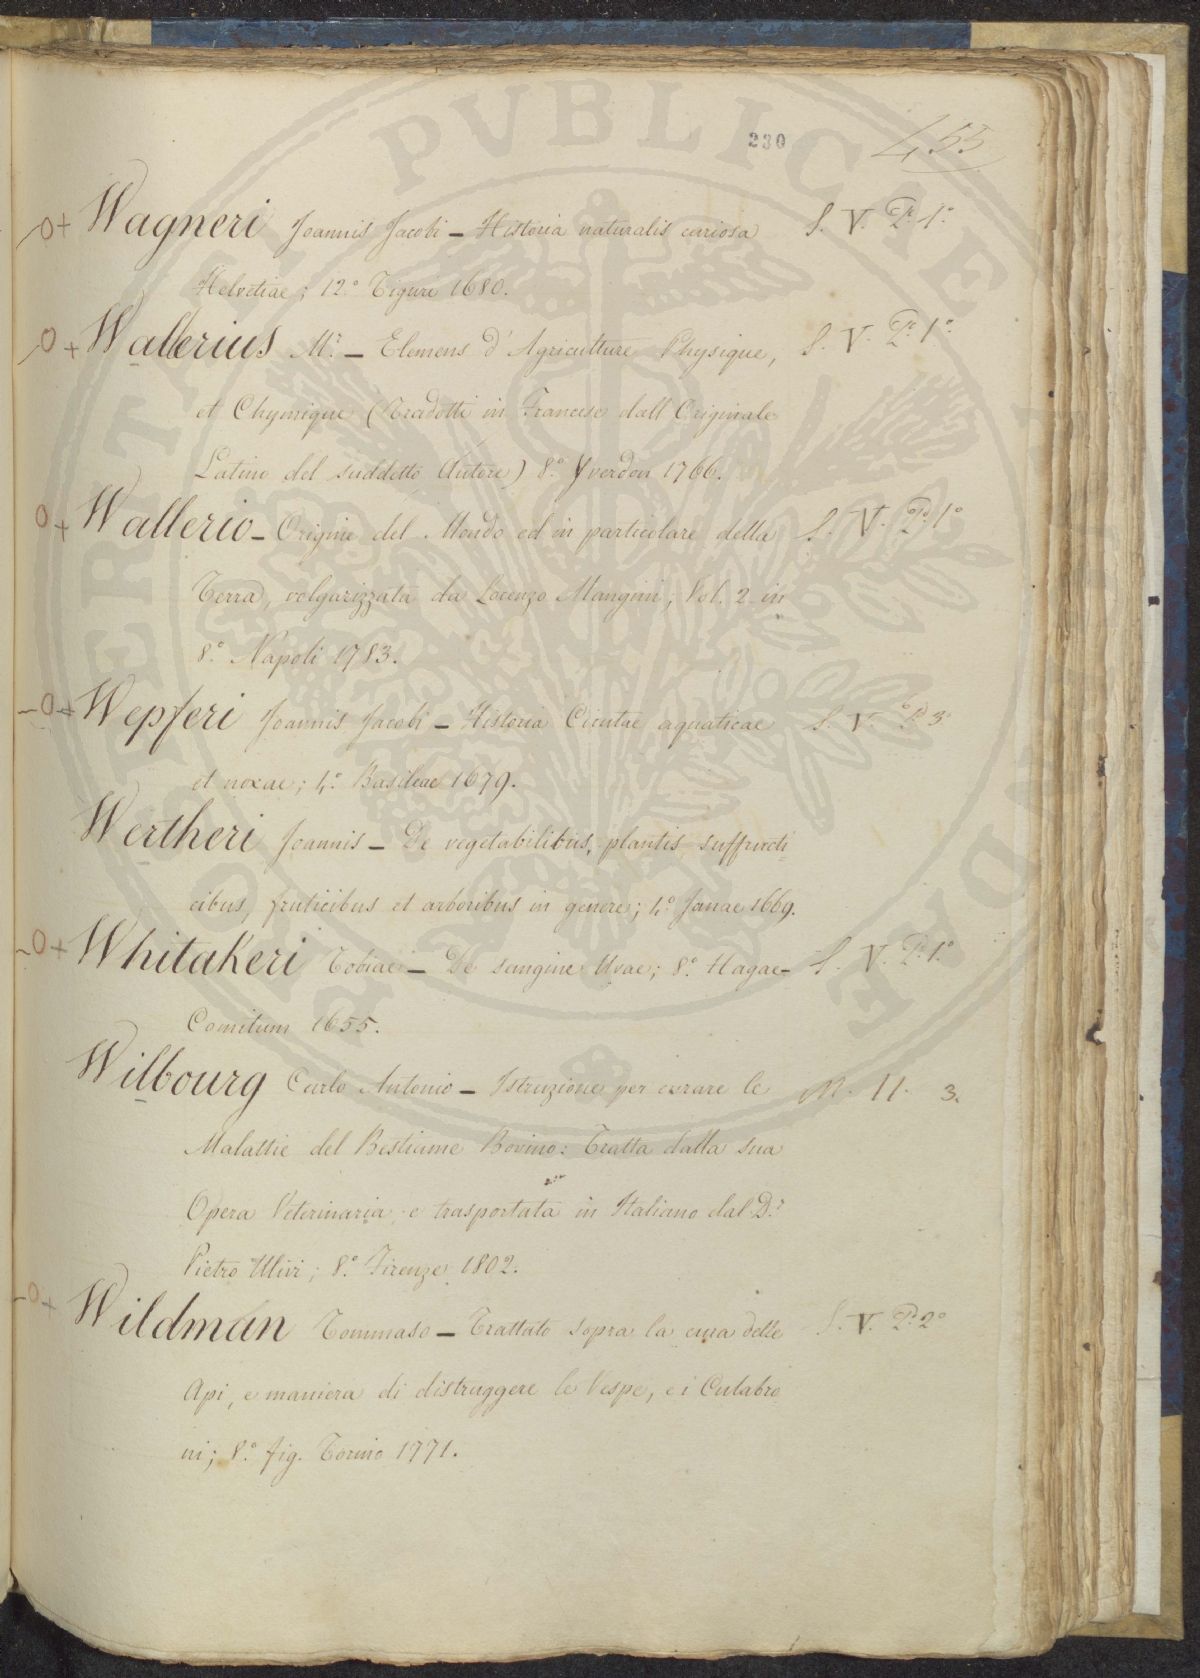 230
455
O+ Wagneri Joannis Jacobi — Historia naturalis curiosa S. V. P.e 1.o
Helvetiae; 12.o Tiguri 1680.
O+ Wallerius M.r — Elemens d'Agriculture Physique, S. V. P.e 1.o
et Chymique (Tradotti in Francese dall'Originale
Latino del suddetto Autore) 8.o Yverdon 1766.
O+ Wallerio — Origine del Mondo ed in particolare della S. V. P.e 1.o
Terra, volgarizzata da Lorenzo Mangini; Vol. 2 in
8.o Napoli 1783.
O+ Wepferi Joannis Jacobi — Historia Cicutae aquaticae S. V. P.e 3.
et noxae; 4.o Basileae 1679.
Wertheri Joannis — De vegetabilibus, plantis suffructi=
cibus, fruticibus et arboribus in genere; 4.o Janae 1669.
O+ Whitakeri Tobiae — De sangine Uvae; 8.o Hagae- S. V. P.e 1.o
Comitum 1655.
Wilbourg Carlo Antonio — Istruzione per curare le M. 11. 3.
Malattie del Bestiame Bovino: Tratta dalla sua
Opera Veterinaria e trasportata in Italiano dal D.r
Pietro Ulivi; 8.o Firenze 1802.
O+ Wildman Tommaso — Trattato sopra la cura delle S. V. P.e 2.o
Api, e maniera di distruggere le Vespe, e i Culabro
ni; 8.o fig. Torino 1771.